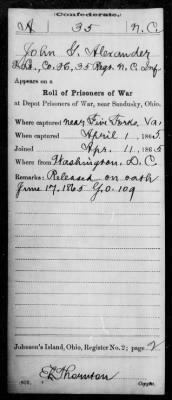 Confederate.
A 35 N.C.
John G. Alexander
Co. H, 35 Regt. N.C. Inf.
Appears on a
Roll of Prisoners of War
at Depot Prisoners of War, near Sandusky, Ohio.
Where captured near Five Forks, Va.
When captured April 1, 1865
Joined Apr. 11, 1865
Where from Washington, D.C.
Remarks: Released on oath
June 17, 1865 G.O. 109
Johnson's Island, Ohio, Register No. 2; page 2
Thornton
Copyist.